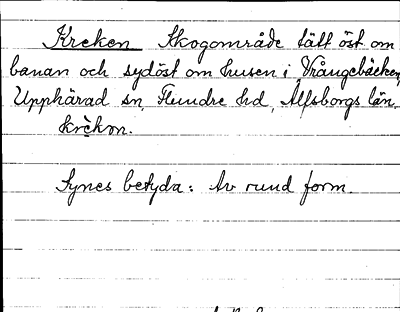 Kreken Skogområde tätt öst om
banan och sydöst om husen i Vrångebäcken,
Upphärad sn, Flundre hd, Älfsborgs län.
krèkon.
Synes betyda: Av rund form.